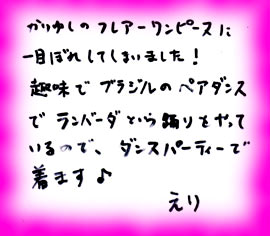 かりゆしのフレアーワンピースに
一目ぼれしてしまいました！
趣味でブラジルのペアダンス
でランバーダという踊りをやって
いるので、ダンスパーティーで
着ます♪
えり